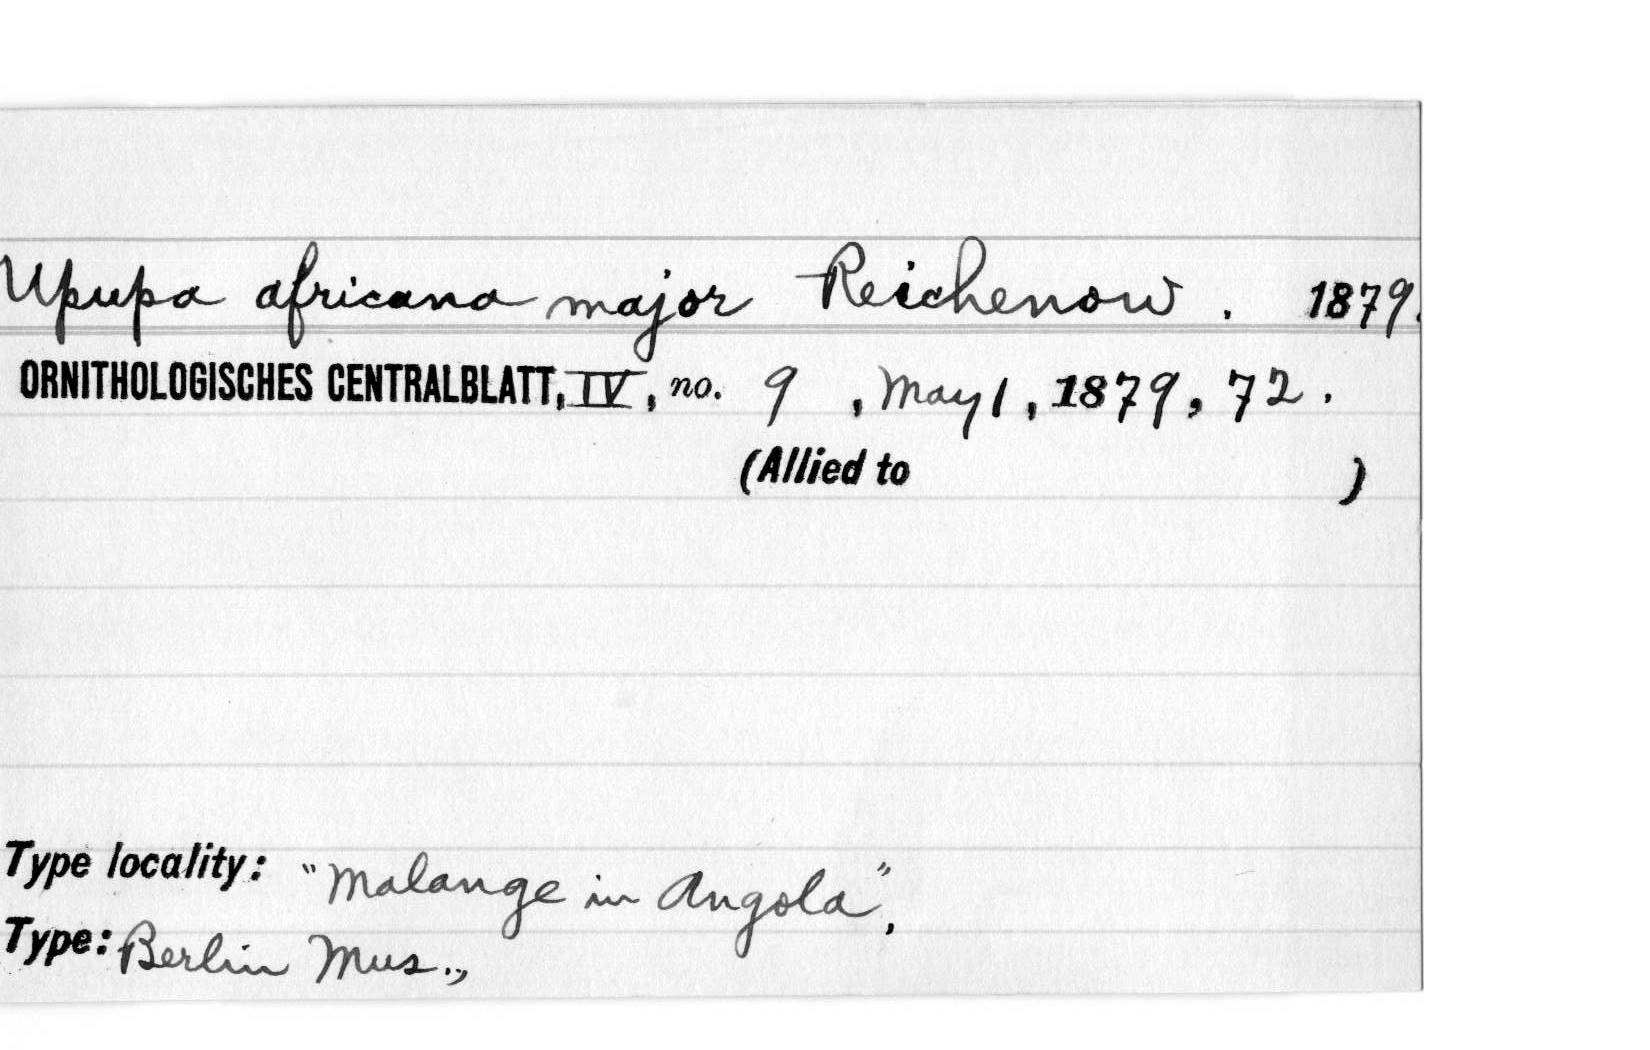 Upupa africana major Reichenow. 1879.
ORNITHOLOGISCHES CENTRALBLATT, IV, no. 9, May 1, 1879, 72.
(Allied to )
Type locality: "Malange in Angola",
Type: Berlin Mus.,